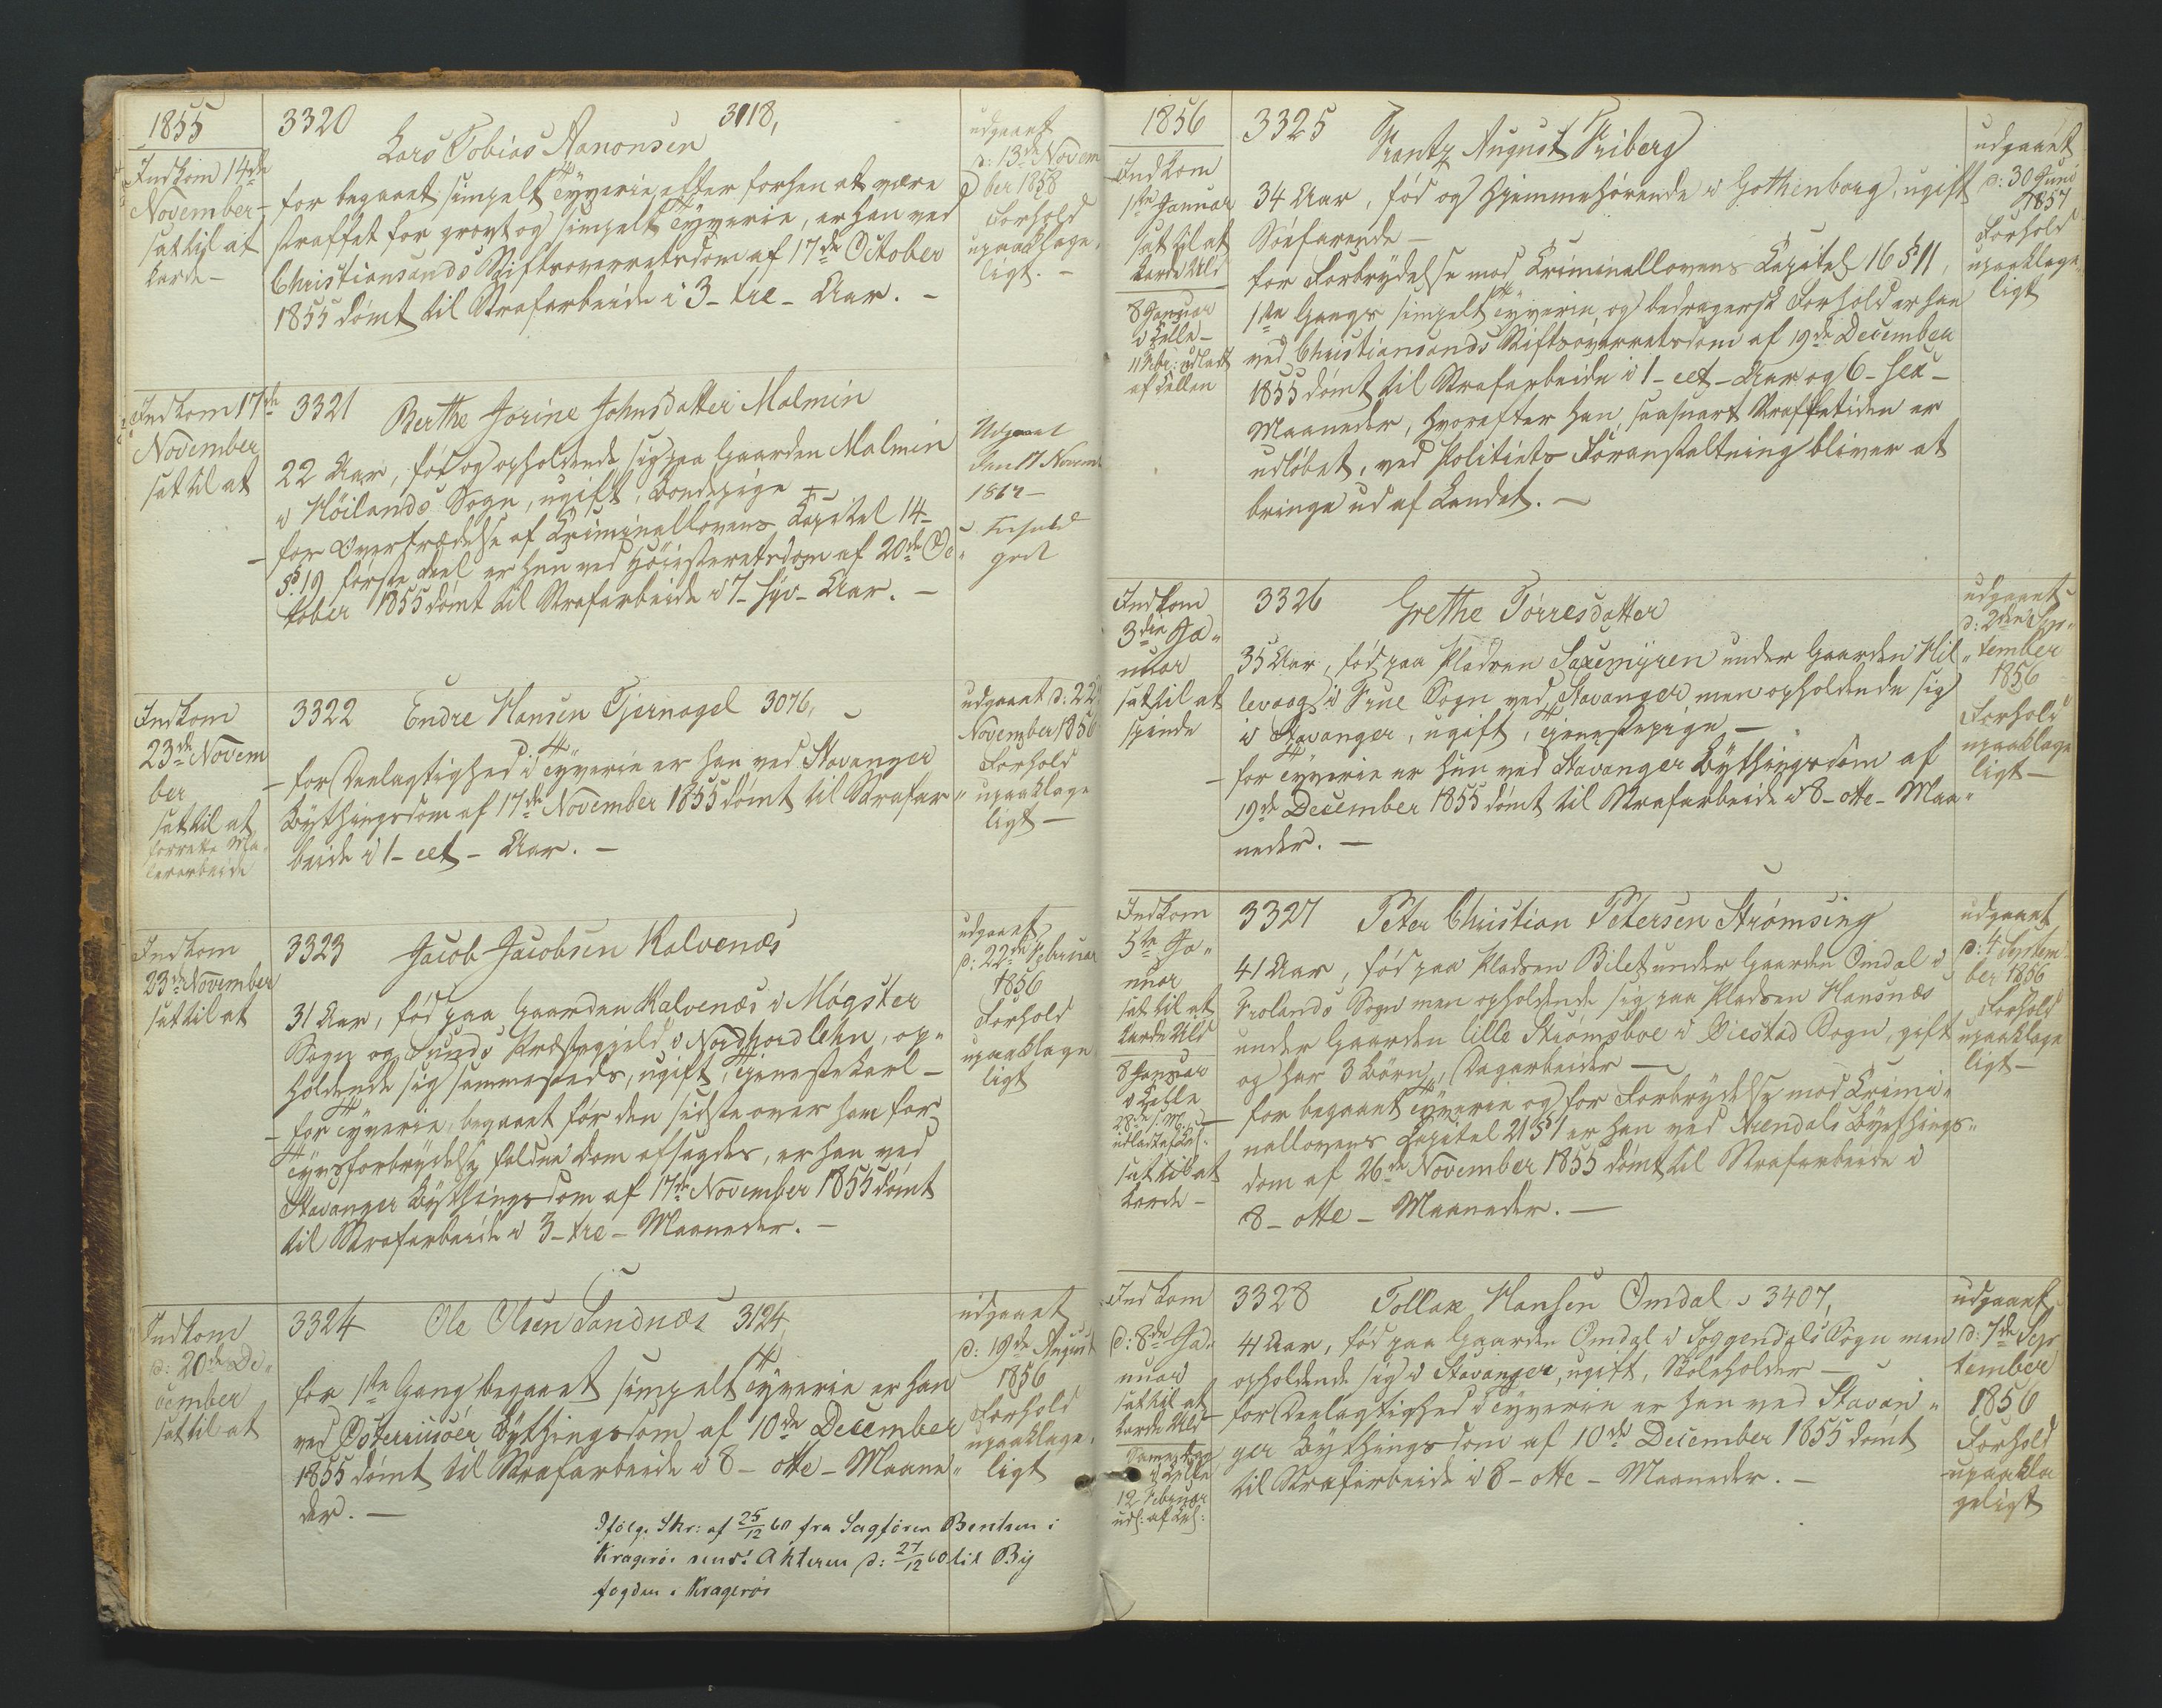 1855
Indkom 14de
November
sat til at
karde –
3320
3118,
Lars Tobias Aanonsen
for begaaet simpelt Tyverie, efter forhen at være
straffet for grovt og simpelt Tyverie, er han ved
Christiansands Stiftsoverretsdom af 17de October
1855 dømt til Strafarbeide i 3 – tre – Aar. –
udgaaet
d: 13de Novem
ber 1858
Forhold
upaaklage,
ligt. –
Indkom 17de
November
sat til at
3321 Berthe Jorine Johnsdatter Malmin
22 Aar, født og opholdende sig paa Gaarden Malmin
i Höilands Sogn, ugift, Bondepige –
– for Overtrædelse af Criminallovens Capitel 14
§ 19 første deel er hun ved Höiesteretsdom af 20de Oc
tober 1855 dømt til Strafarbeide i 7 – syv – Aar. –
Udgaaet
den 17 Novemb
1862 –
Forhold
godt
Indkom
23de Novem
ber
sat til at
forrette Ma
lerarbeide
3322 Endre Hansen Tjernagel 3076,
– for Deelagtighed i Tyverie er han ved Stavanger
Bythingsdom af 17de November 1855 dømt til Strafar„
beide i 1 – eet – Aar. –
udgaaet d: 22
November 1856
Forhold
upaaklage
ligt –
Indkom
23de November
sat til at
3323 Jacob Jacobsen Kalvenæs
31 Aar, født paa Gaarden Kalvenæs i Møgster
Sogn og Sunds Præstegjeld i Nordhordlehn, op„
holdende sig sammesteds, ugift, Tjenestekarl –
– for Tyverie, begaaet før den sidste over ham for
Tyvsforbrydelse faldne Dom afsagdes, er han ved
Stavanger Bythingsdom af 17de November 1855 dømt
til Strafarbeide i 3 – tre – Maaneder. –
udgaaet
d: 22de Februar
1856
Forhold
upaaklage,
ligt
Indkom
d: 20de De„
cember
sat til at
3324 Ole Olsen Sandnæs 3124,
for 1ste Gang begaaet simpelt Tyverie er han
ved Österriisöer Bythingsdom af 10de December
1855 dømt til Strafarbeide i 8 – otte – Maane„
der. –
udgaaet
d: 19de August
1856
Forhold
upaaklage,
ligt
Ifølge Skr: af 25/12 60 fra Sagfører Bentsen i
Kragerø send: Akterne d: 27/12 60 til By
fogden i Kragerø
1856
Indkom
1ste Januar
sat til at
karde Uld
8 Januar
i Celle –
udladt
af Cellen
3325 Frantz August Friberg
34 Aar, fød og hjemmehørende i Gothenborg, ugift
Söefarende –
for Forbrydelse mod Criminallovens Capitel 16 § 11,
1ste Gangs simpelt Tyverie, og bedragersk Forhold er han
ved Christiansands Stiftsoverretsdom af 19de December
1855 dømt til Strafarbeide i 1 – eet – Aar og 6 – sex –
Maaneder, hvorefter han, saasnart Straffetiden er
udløbet, ved Politiets Foranstaltning bliver at
bringe ud af Landet. –
udgaaet
d: 30 Juni
1857
Forhold
upaaklage,
ligt
Indkom
3die Ja„
nuar
sat til at
spinde
3326 Grethe Torresdatter
35 Aar, født paa Pladsen Saxemyren under Gaarden Hil„
levaag i Frue Sogn ved Stavanger, men opholdende sig
i Stavanger, ugift, Tjenestepige –
– for Tyverie er hun ved Stavanger Bythingsdom af
19de December 1855 dømt til Strafarbeide i 8 – otte – Maa„
neder. –
udgaaet
d: 2den Sep„
tember
1856
Forhold
upaaklage
ligt –
Indkom
5te Ja„
nuar
sat til at
karde Uld
8 Januar
i Celle
28de s. M.
udladt af Cel:
sat til at
karde –
3327 Peter Christian Petersen Strømsing
41 Aar, født paa Pladsen Bilet under Gaarden Omdal i
Frolands Sogn men opholdende sig paa Pladsen Hansnæs
under Gaarden lille Strømsboe i Öiestad Sogn, gift
og har 3 Børn, Dagarbeider –
– for begaaet Tyverie og for Forbrydelse mod Crimi„
nallovens Capitel 21 § 1 er han ved Arendals Bythings„
dom af 26de November 1855 dømt til Strafarbeide i
8 – otte – Maaneder. –
udgaaet
d: 4 Septem
ber 1856
Forhold
upaaklage
ligt –
Indkom
d: 8de Ja„
nuar
sat til at
karde Uld
Samme Dag
i Celle
12 Februar
udl: af Cel:
3328 Tollak Hansen Omdal, 3407,
41 Aar, født paa Gaarden Omdal i Soggendals Sogn men
opholdende sig i Stavanger, ugift, Skoleholder –
for Deelagtighed i Tyverie er han ved Stavan„
ger Bythingsdom af 10de December 1855 dømt
til Strafarbeide i 8 – otte – Maaneder. –
udgaaet
d: 7de Sep
tember
1856
Forhold
upaakla
geligt